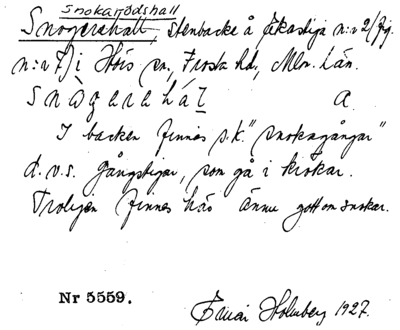 Snokarödshall
Snogerahall, stenbacke å Ekastiga n:r 2/fig.
n:r 7) i Hörs sn, Frosta hd, Mlm. län.
Snàgaraháḷ a
I backen finnes s.k. "snokagångar"
d.v.s. gångstigar, som gå i krökar.
Troligen finnes här ännu gott om snokar.
Nr 5559. Holmberg 1927.